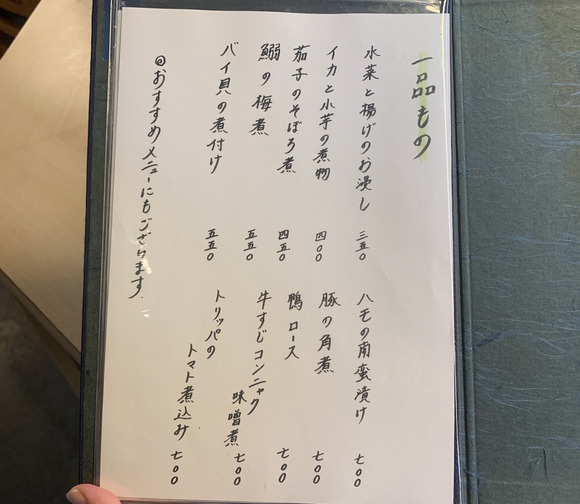 一品もの
水菜と揚げのお浸し 三五〇
イカと小芋の煮物 四〇〇
茄子のそぼろ煮 四五〇
鰯の梅煮 五五〇
バイ貝の煮付け 五五〇
ハモの南蛮漬け 七〇〇
豚の角煮 七〇〇
鴨ロース 七〇〇
牛すじコンニャク
味噌煮 七〇〇
トリッパの
トマト煮込み 七〇〇
◎おすすめメニューにもございます.